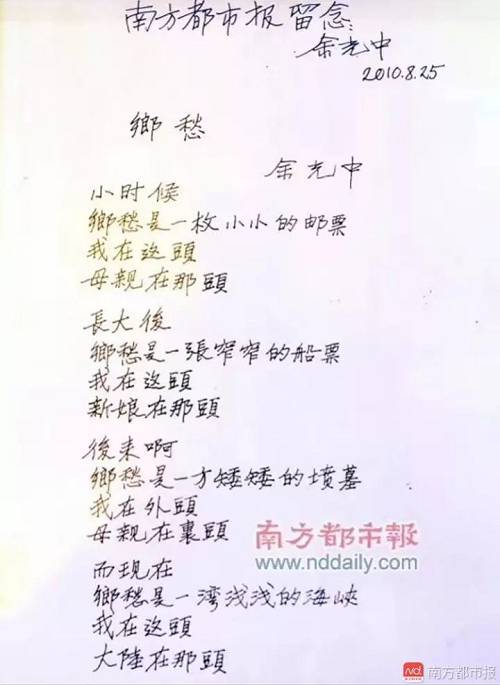 南方都市报留念:
余光中
2010.8.25
鄉愁
余光中
小时候
鄉愁是一枚小小的邮票
我在这頭
母親在那頭
長大後
鄉愁是一張窄窄的船票
我在这頭
新娘在那頭
後来啊
鄉愁是一方矮矮的墳墓
我在外頭
母親在裏頭
南方都市報
www.nddaily.com
而現在
鄉愁是一湾浅浅的海峽
我在这頭
大陸在那頭
nd 南方都市报